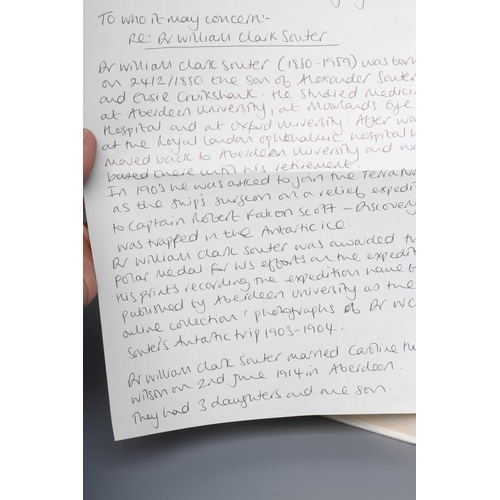 To who it may concern:-
Re: Dr William Clark Souter
Dr William Clark Souter (1880-1959) was born
on 2412/1880 the son of Alexander Souter
and Elsie Cruikshank. He studied Medicin
at Aberdeen University, at Moorlands Eye
Hospital and at Oxford University. After wor
at the Royal London Ophthalmic Hospital
moved back to Aberdeen University and wa
based there until his retirement.
In 1903 he was asked to join the Terra No
as the ship's surgeon on a relief expedit
to Captain Robert Falcon Scott - Discovery
was trapped in the Antartic ice.
Dr William Clark Souter was awarded th
Polar Medal for his efforts on the expedit
His prints recording the expedition have b
published by Aberdeen University as the
online collection 'photographs of Dr WC
Souter's Antartic trip 1903-1904..
Dr William Clark Souter married Caroline
Wilson on 2nd June 1914 in Aberdeen.
They had 3 daughters and one son.